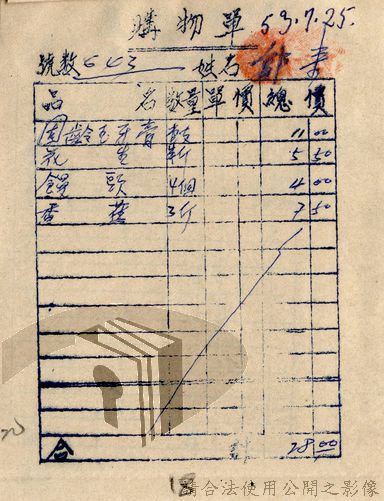 購物單 53.7.25.
號數 643 姓名
品名 數量 單價 總價
固齡玉牙膏 1支 11 00
花生 半斤 5 50
饅頭 4個 4 00
香蕉 3斤 7 50
合 計 28 00
18
請合法使用公開之影像